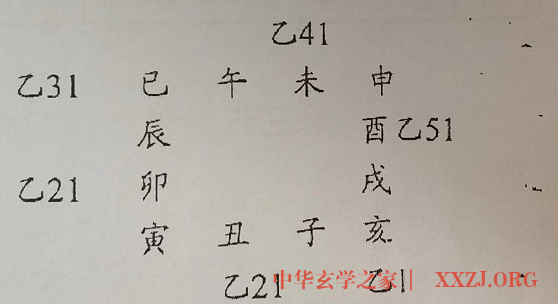 乙41
乙31 巳 午 未 申
辰 酉 乙51
乙21 卯 戌
寅 丑 子 亥
乙21 中华玄学之家 || 乙1 XXZJ.ORG